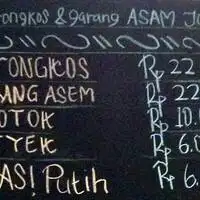 ongkos & garang ASAM J
TONGKOS Rp 22
ANG ASEM Rp 22
OTOK Rp 10.0
YEK Rp 6.0
ASI Putih Rp 6.